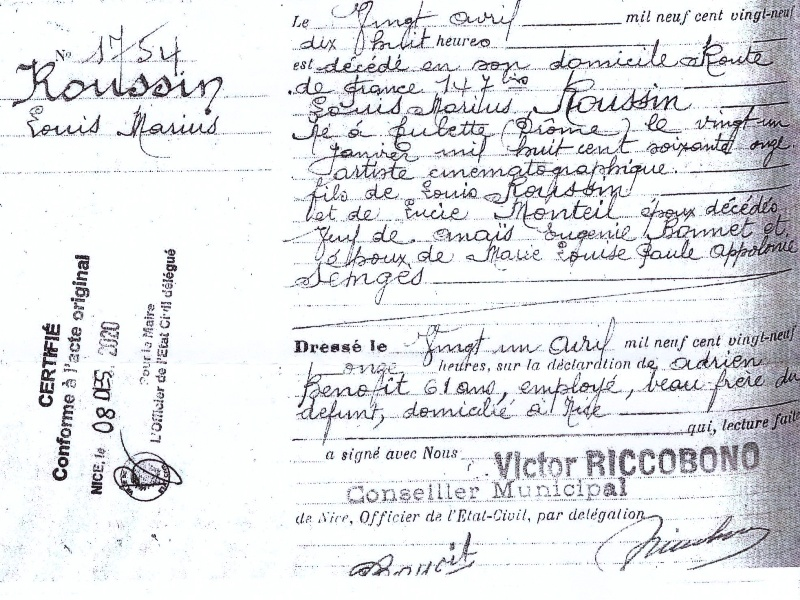 N° 1754
Roussin
Louis Marius
CERTIFIÉ
Conforme à l'acte original
NICE, le 08 DEC. 2020
Pour le Maire
L'Officier de l'Etat Civil délégué
Le Vingt avril mil neuf cent vingt-neuf
dix huit heures
est décédé en son domicile Route
de france 147 bis
Louis Marius Roussin
né à (Drôme) le vingt un
janvier mil huit cent soixante onze
artiste cinematographique
fils de Louis Roussin
et de Lucie Monteil époux décédés
Veuf de anaïs Eugenie Bonnet et
époux de Marie Louise Paule Appolonie
Semgès
Dressé le Vingt un avril mil neuf cent vingt-neuf
onze heures, sur la déclaration de adrien
Benoit 61 ans, employé, beau frère du
défunt, domicilié à Nice
qui, lecture faite
a signé avec Nous
Victor RICCOBONO
Conseiller Municipal
de Nice, Officier de l'Etat-Civil, par délégation
Benoit